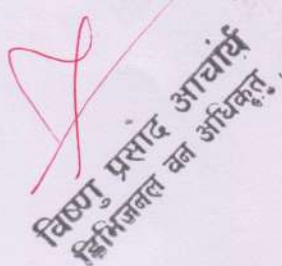 विष्णु प्रसाद आचार्य
डिभिजनल वन अधिकृत